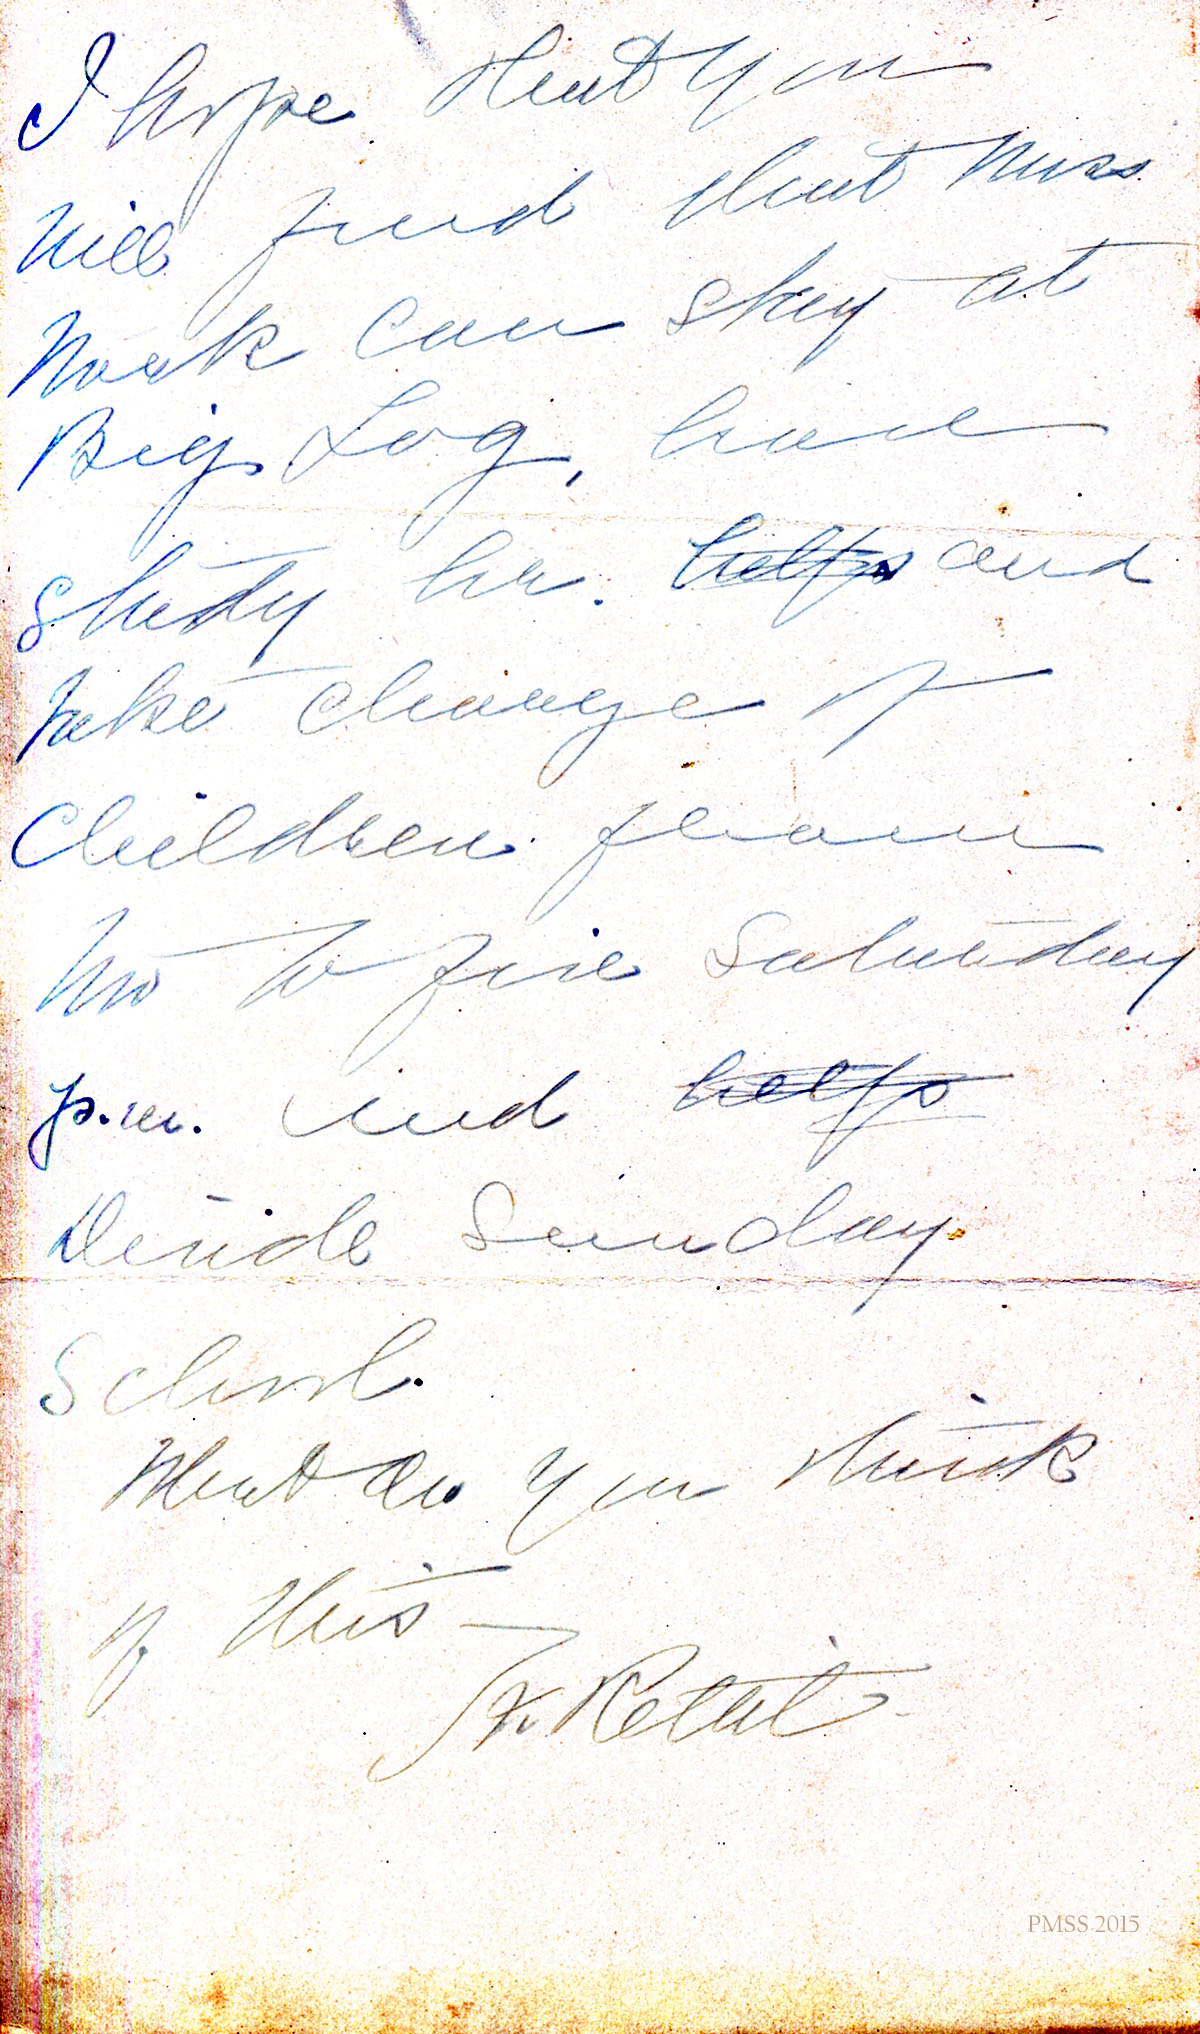 I hope that you
will find that Miss
can stay at
Big Log, have
study hr. helps and
take charge of
Children from
two to five Saturday
p.m. and helps
Divide Sunday
School.
What do you think
of this —
K. Pettit
PMSS 2015